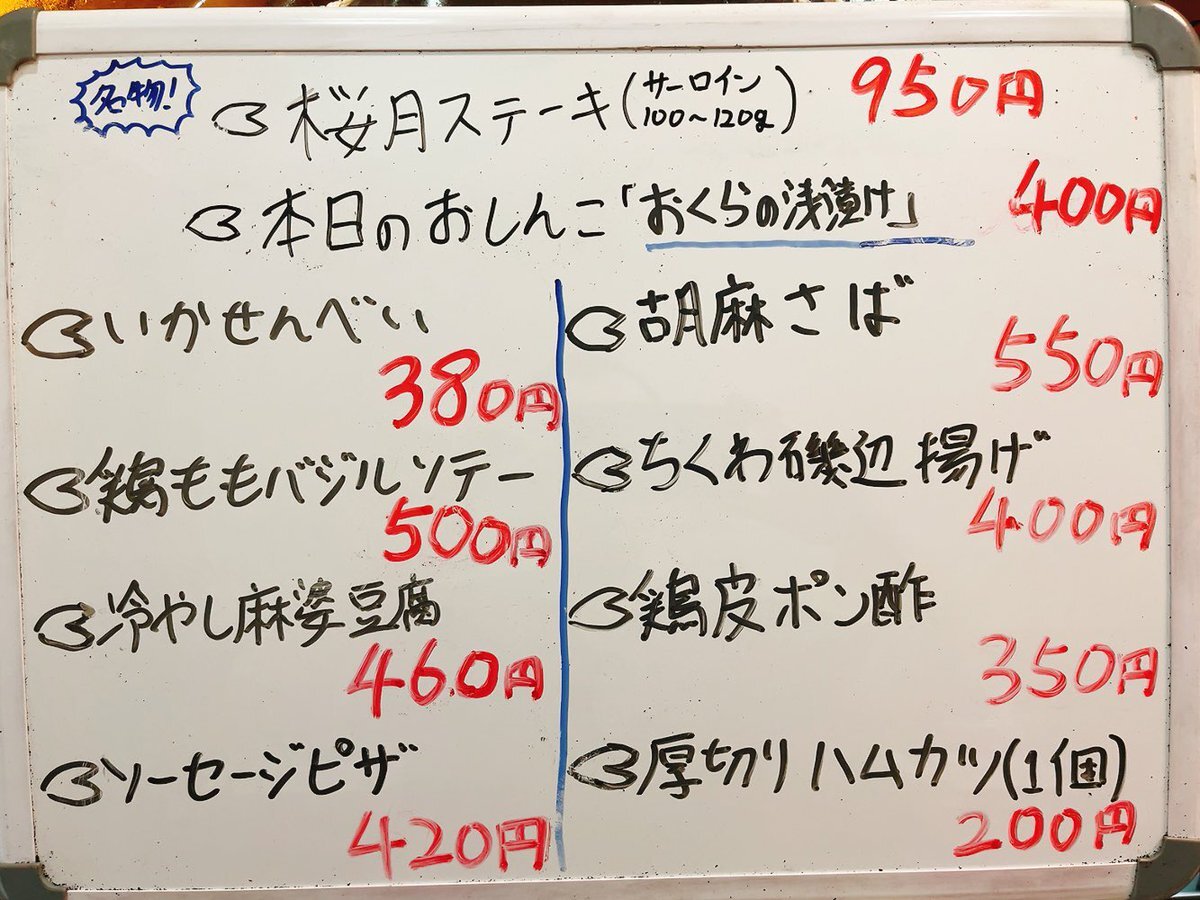 名物!
桜月ステーキ(サーロイン 100~120g) 950円
本日のおしんこ「おくらの浅漬け」 400円
いかせんべい
380円
鶏ももバジルソテー
500円
冷やし麻婆豆腐
460円
ソーセージピザ
420円
胡麻さば
550円
ちくわ磯辺揚げ
400円
鶏皮ポン酢
350円
厚切りハムカツ(1個)
200円